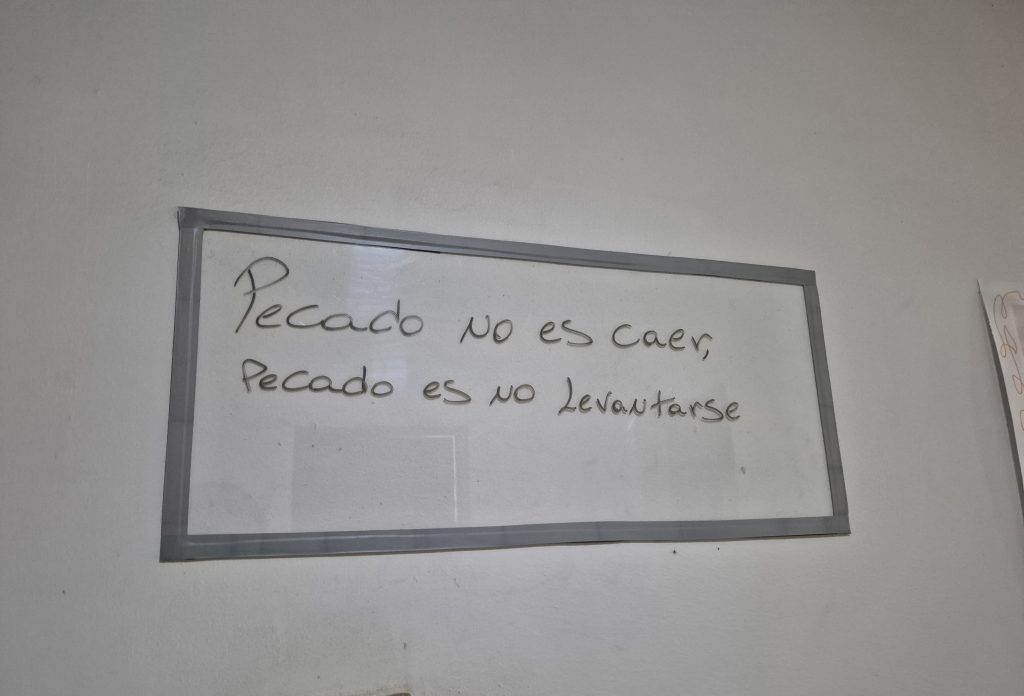 Pecado no es caer,
Pecado es no Levantarse